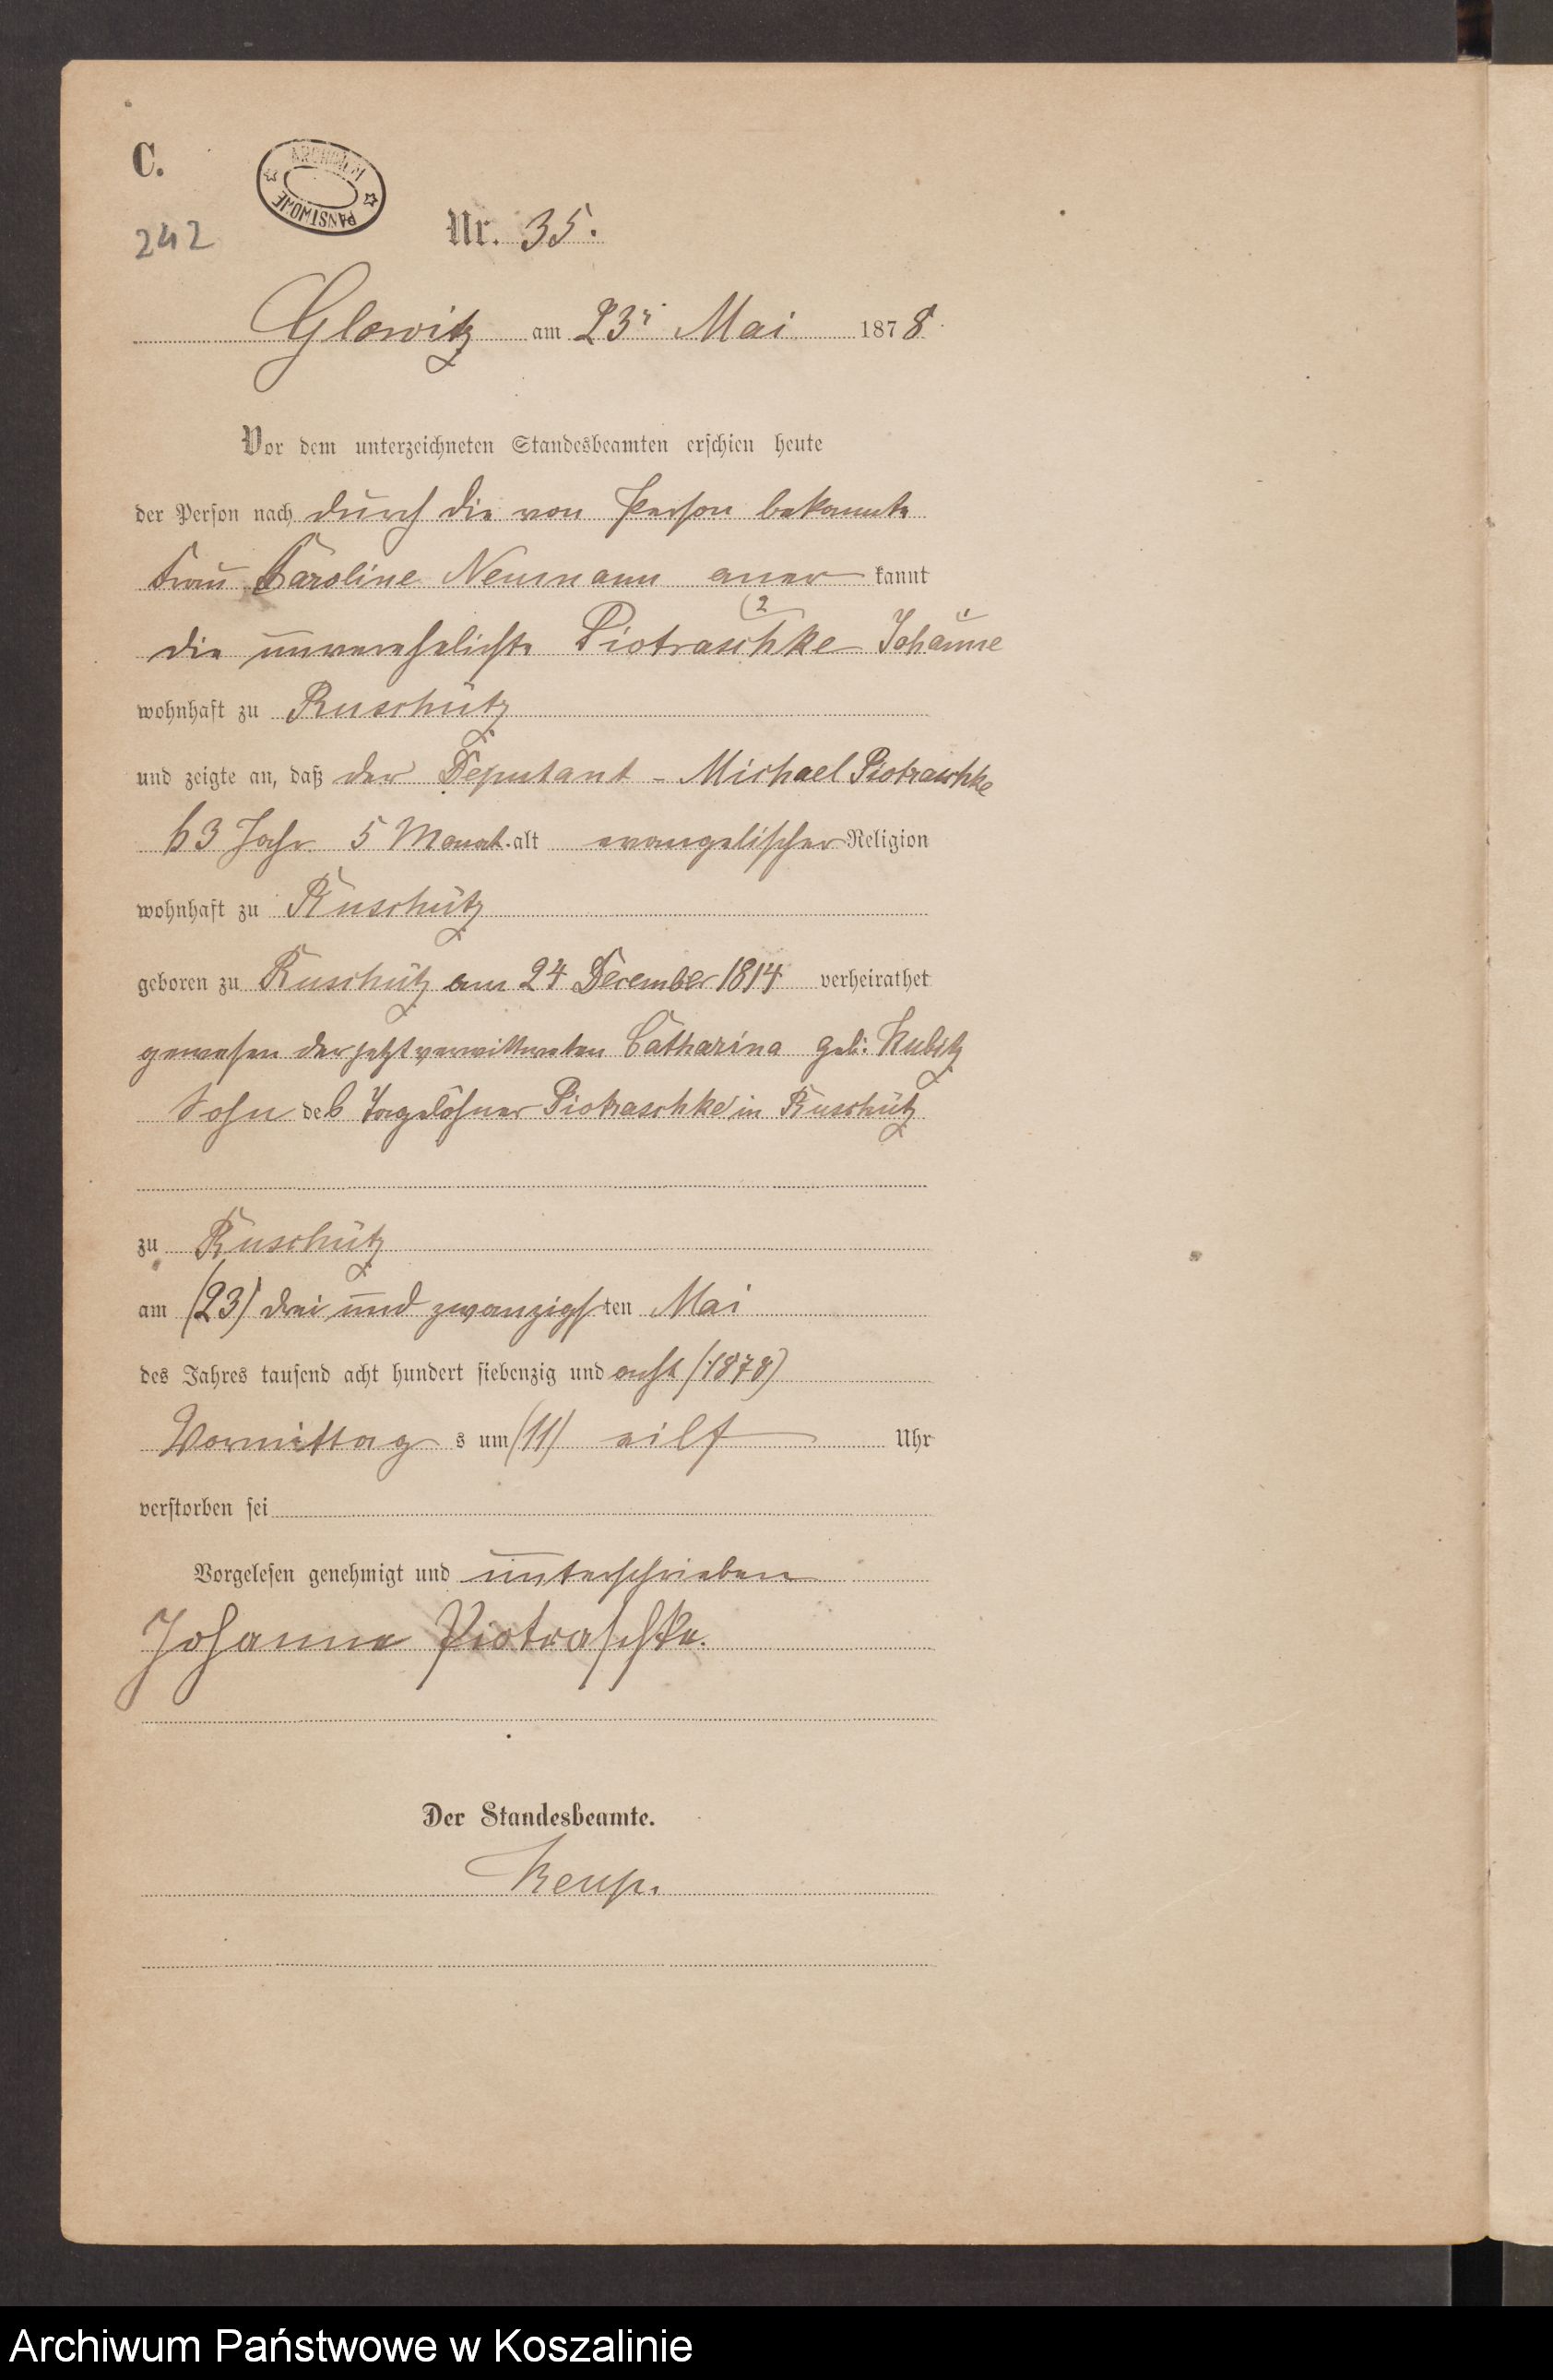 C.
ARCHIWUM PAŃSTWOWE
242
Nr. 35.
Glowitz am 23t Mai 1878.
Vor dem unterzeichneten Standesbeamten erschien heute
der Person nach durch die von Person bekannte
Frau Caroline Neumann aner kannt
die unverehelichte Piotraschke Johanne
wohnhaft zu Ruschütz
und zeigte an, daß der Deputant - Michael Piotraschke
63 Jahr 5 Monat. alt evangelischer Religion
wohnhaft zu Ruschütz
geboren zu Ruschütz am 24 December 1814 verheirathet
gewesen der jetzt verwittweten Catharina geb: Kubitz
Sohn des Tagelöhner Piotraschke in Ruschütz
zu Ruschütz
am (23) drei und zwanzigsten Mai
des Jahres tausend acht hundert siebenzig und acht (1878)
Vormittag s um (11) eilf Uhr
verstorben sei
Vorgelesen genehmigt und unterschrieben
Johanna Piotraschke.
Der Standesbeamte.
Keup.
Archiwum Państwowe w Koszalinie